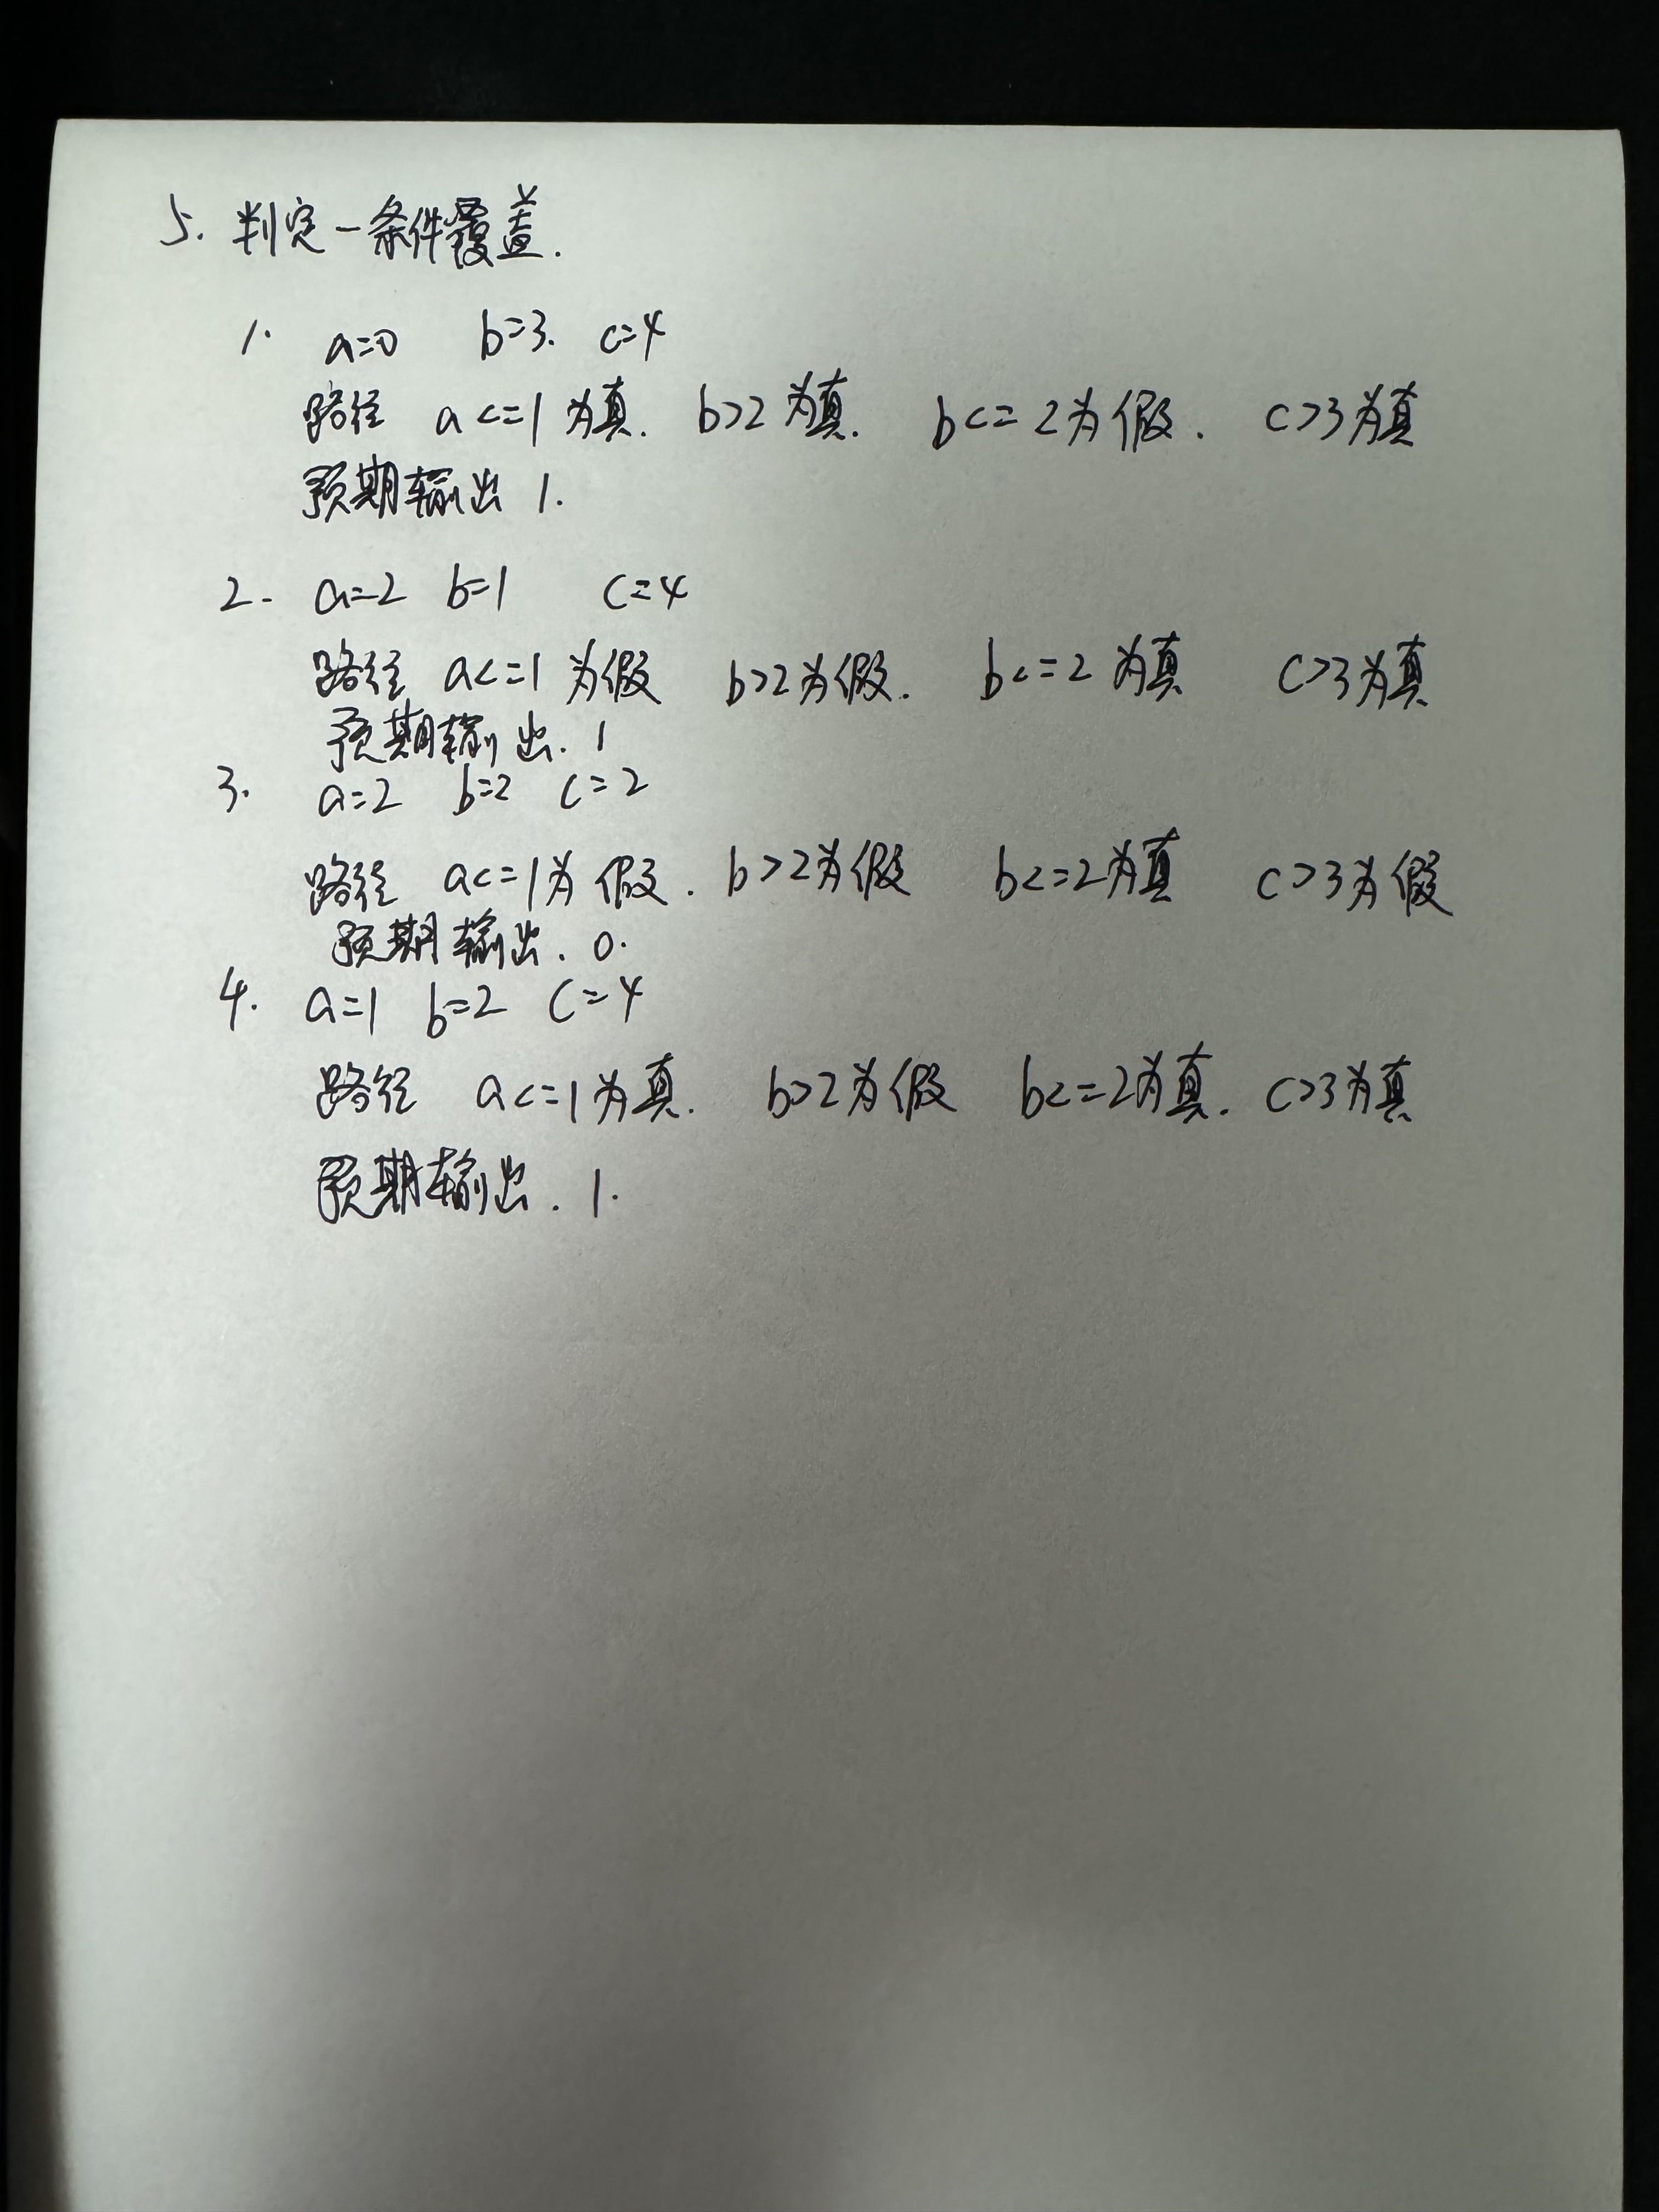 5. 判定-条件覆盖.
1. a=0 b=3. c=4
路径 a<=1为真. b>2为真. b<=2为假. c>3为真
预期输出 1.
2. a=2 b=1 c=4
路径 a<=1为假 b>2为假. b<=2为真 c>3为真
预期输出. 1
3. a=2 b=2 c=2
路径 a<=1为假. b>2为假 b<=2为真 c>3为假
预期输出. 0.
4. a=1 b=2 c=4
路径 a<=1为真. b>2为假 b<=2为真. c>3为真
预期输出. 1.